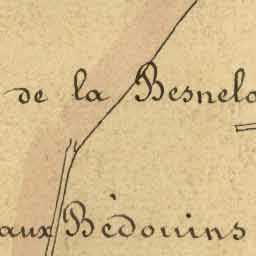 de la Besnela
aux Bédouins